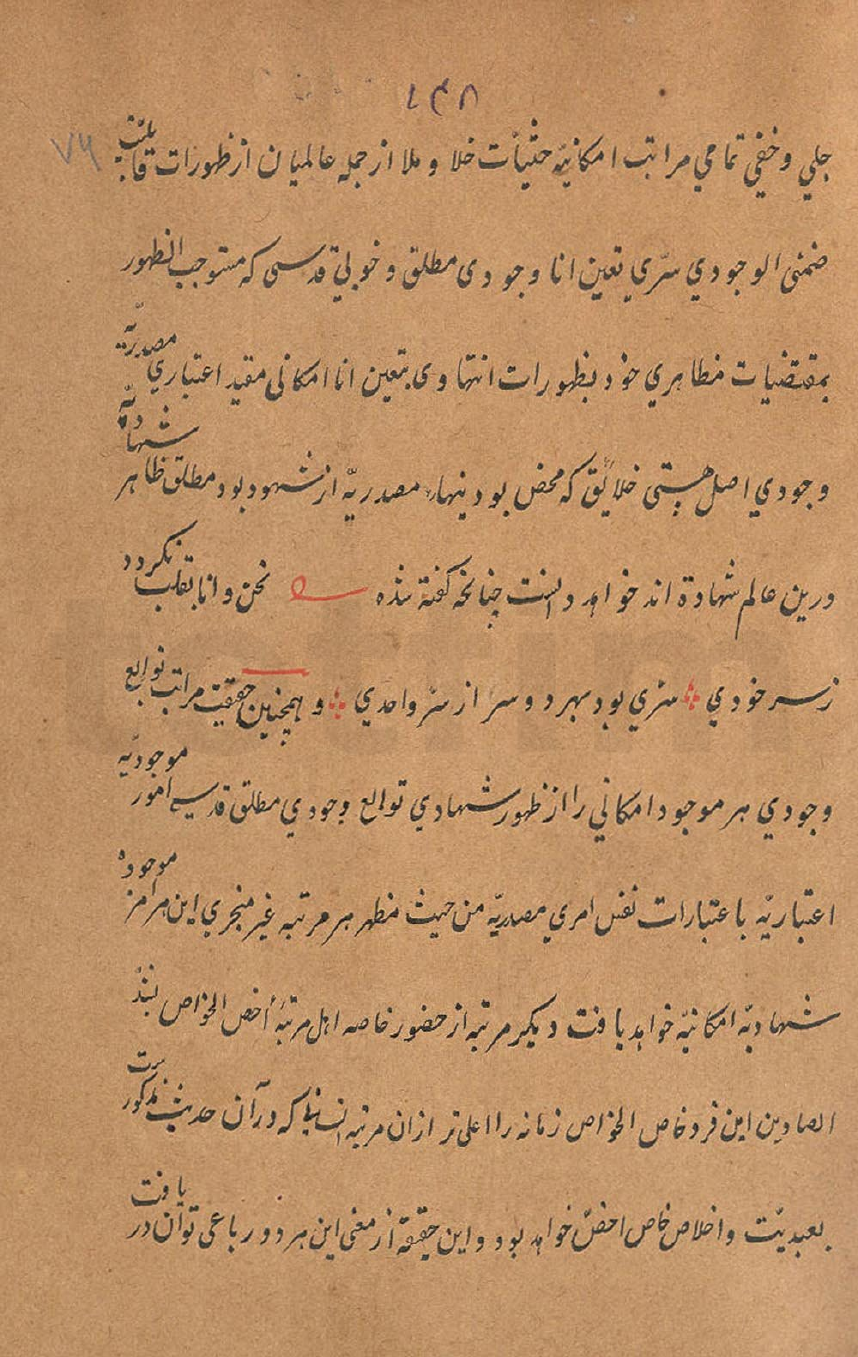 ۱۴۸
۷۶
جلي و خفي تمامي مراتب امكانيّه حثيأت خلا و ملا از جمله عالميان از ظهورات قابليّت
ضمنى الوجودي سرّي تعين انا وجودى مطلق و خوبي قدسى كه مستوجب الظهور
بمقتضيات مظاهري خود بظهورات انتهاوى بتعين انا امكانى مقيد اعتباري مصدريّه
وجودي اصل هستى خلائق كه محض بود ينهاء مصدريّه از شهود بود مطلق ظاهر شهادتيّه
درين عالم شهادة اند خواهد دانست چنانچه گفته شده نحن و انا بقلب نكردد
ز سر خودي سرّي بود مهرد و سرّ از سرّ واحدي و همچنين حقيقت مراتب توابع
وجودي هر موجود امكاني را از ظهور شهادي توابع وجودي مطلق قدسي امور موجوديّه
اعتباريّه باعتبارات نفس امري مصدريّه من حيث مظهر هر مرتبه غير منجري اين هر امر موجوده
شهاديّه امكانيّه خواهد يافت ديكر مرتبه از حضور خاصه اهل مرتبهٔ أخص الخواص
الصادين اين فرد خاص الخواص زمانه را اعلى تر ازان مرتبه كه در آن حديث مذكور
بعبديّت و اخلاص خاص اخصّ خواهد بود و اين حقيقة از معنى اين هر دو رباعى توان در يافت